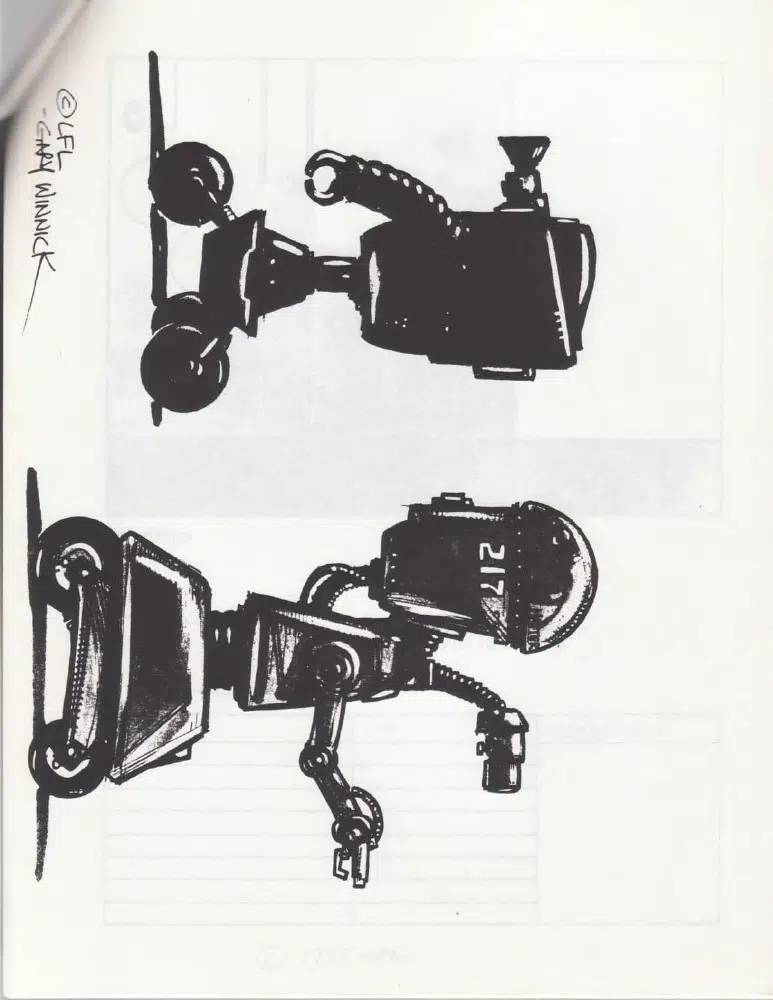 © LFL
-GARY WINNICK
217